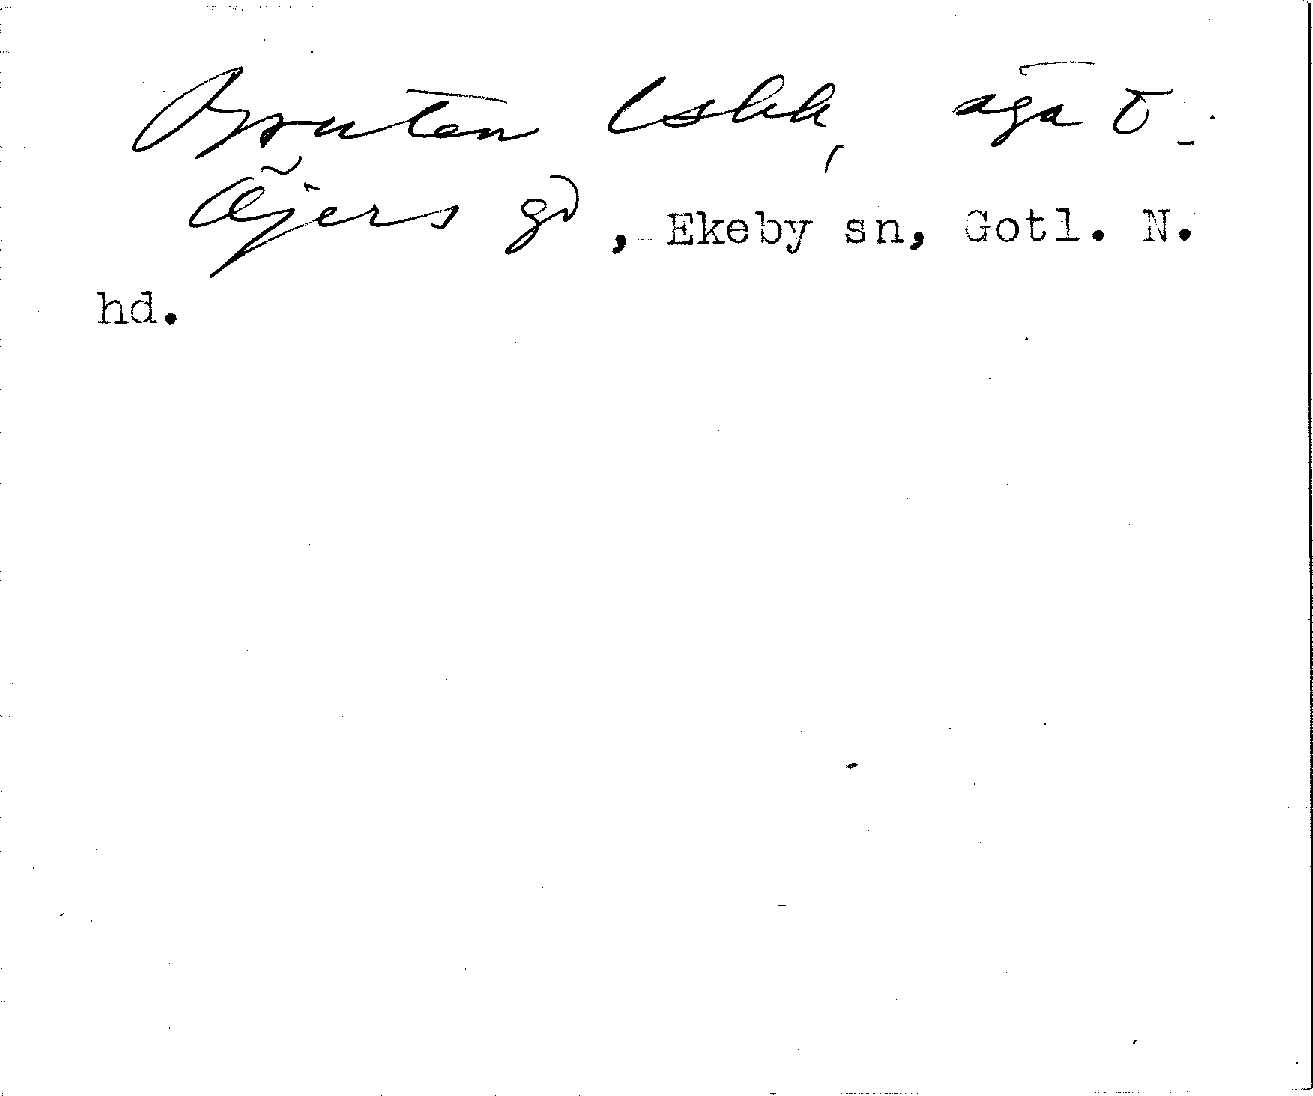 Bruten lskk, äga t.
Öjers gd, Ekeby sn, Gotl. N.
hd.